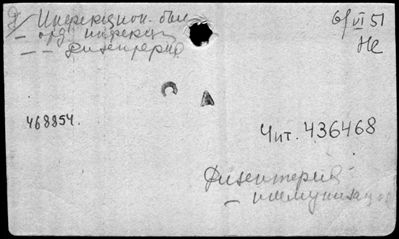 Инфекцион. бол
6/VI 51
— орд. инфекц
Не
— — дизентерия
468854.
Чит. 436468
Дизентерия
— иммунизация